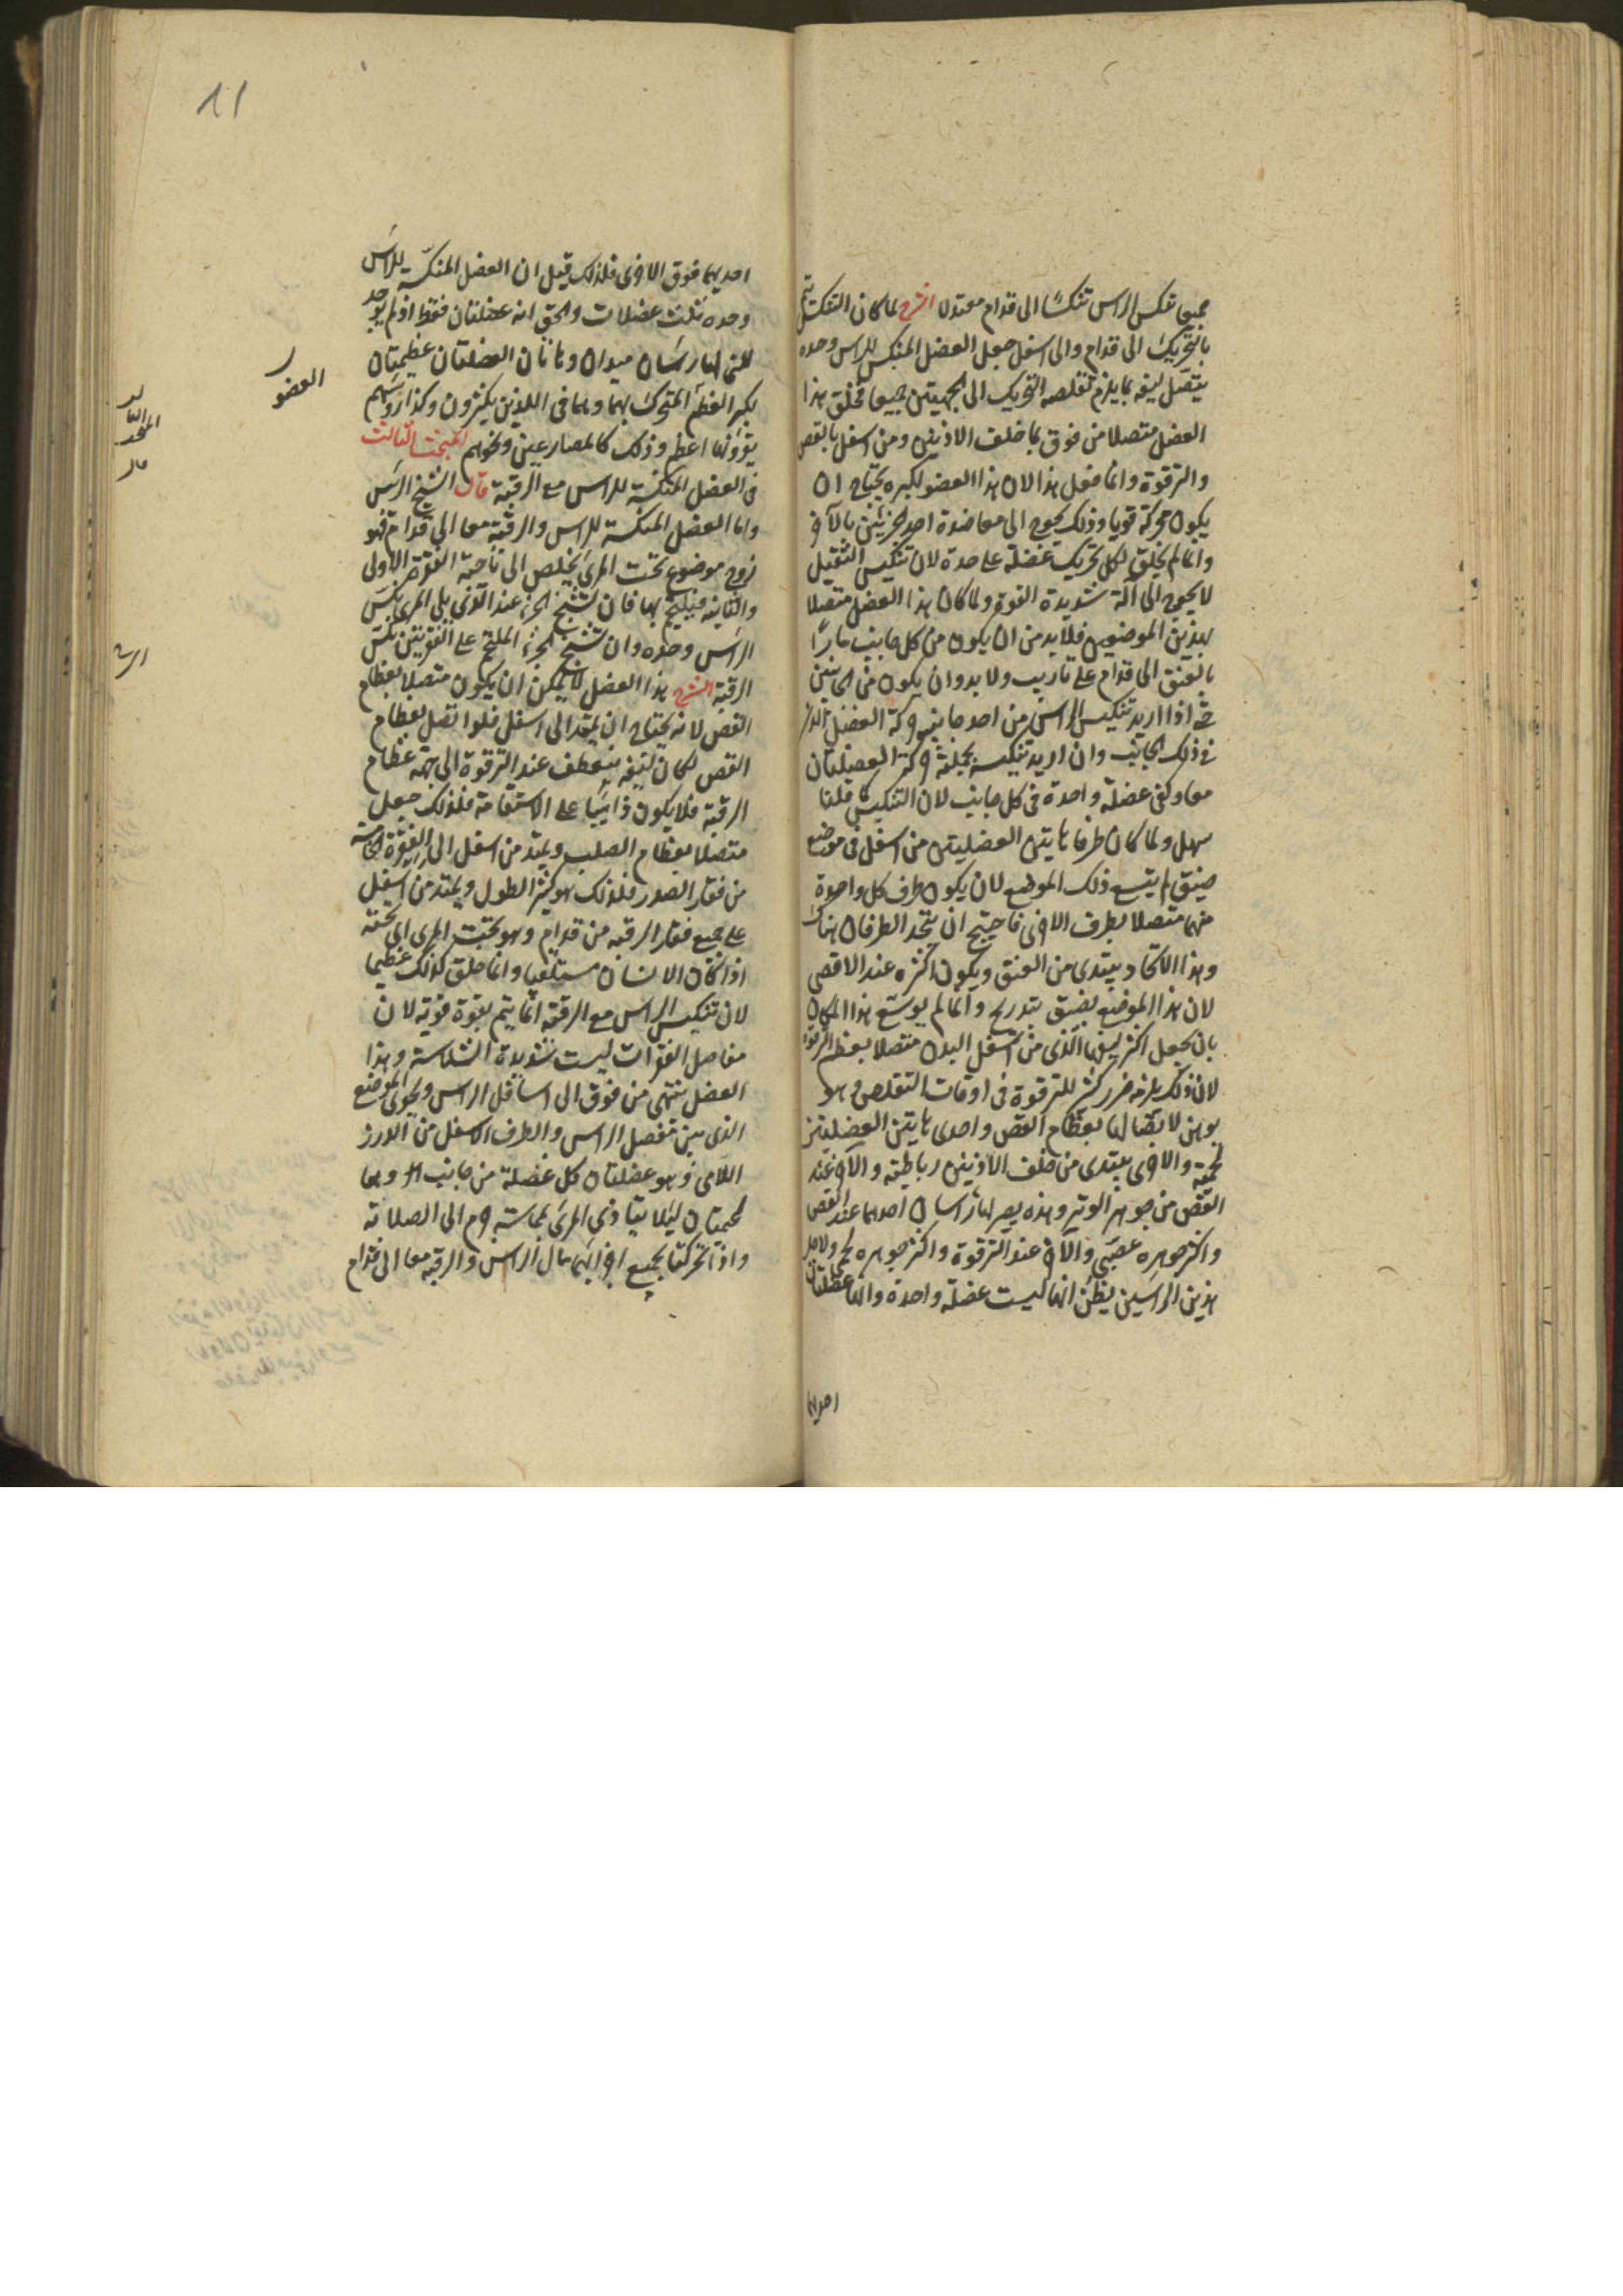 جميعا تنكس الراس تنكسًا الى قدام معتدلا الشرح لما كان التنكيس يتم
بالتحريك الى قدام والى اسفل جعل العضل المنكس للراس وحده
يتصل ليفه بما يلزم تقلصه التحريك الى الجهتين جميعا فخلق هذا
العضل متصلا من فوق بما خلف الاذنين ومن اسفل بالقص
والترقوة وانما فعل هذا لان هذا العضو لكبره يحتاج ان
يكون محركه قويا وذلك يحوج الى معاضدة احد الجزئين بالآخر
وانما لم يخلق لكل تحريك عضلة على حدة لان تنكيس الثقيل
لا يحوج الى آلة شديدة القوة ولما كان هذا العضل متصلا
بهذين الموضعين فلا بد من ان يكون من كل جانب مارًا
بالعنق الى قدام على تاريب ولا بد وان يكون من الجانبين
حتى اذا اريد تنكيس الراس من احد جانبيه حركه العضل الذى
فى ذلك الجانب وان اريد تنكيسه بجملته حركته العضلتان
معا وكفى عضلة واحدة فى كل جانب لان التنكيس كما قلنا
سهل ولما كان طرفا هاتين العضلتين من اسفل فى موضع
ضيق لم يتسع ذلك الموضع لان يكون طرف كل واحدة
منهما متصلا بطرف الاخرى فاحتيج ان يتحد الطرفان هناك
وهذا الاتحاد يبتدى من العنق ويكون اكثره عند الاقصى
لان هذا الموضع يضيق بتدريج وانما لم يوسع هذا المكان
بان يجعل اكثر ليفها الذى من اسفل البدن متصلا بعظم الترقوة
لان ذلك يلزمه ضرر كثير للترقوة فى اوقات التقلص وهو
يوهن لاتصالها بعظام القص واحدى هاتين العضلتين
لحمية والاخرى يبتدى من خلف الاذنين رباطية والآخر عند
القص من جوهر الوتر وهذه يصير لها راسان احدهما عند القص
واكثر جوهره عصبى والآخر عند الترقوة واكثر جوهره لحمى ولاجل
هذين الراسين يظن انها ليست عضلة واحدة وانها عضلتان
احديهما
11
احديهما فوق الاخرى فلذلك قيل ان العضل المنكسة للراس
وحده ثلث عضلات والحق انه عضلتان فقط اذ لم يوجد
للتى لها راسان مبدان وهاتان العضلتان عظيمتان
لكبر العظم المتحرك بهما وهما فى اللذين يكثرون وكذا رؤسهم
يقوونها اعظم وذلك كالمصارعين ونحوهم المبحث الثالث
فى العضل المنكسة للراس مع الرقبة قال الشيخ الرئيس
واما العضل المنكسة للراس والرقبة معا الى قدام فهو
زوج موضوع تحت المرى يخلص الى ناحية الفقرة الاولى
والثانية فيلتحم بها فان تشنج الجزء عند الذى يلى المرى نكس
الراس وحده وان تشنج الجزء الملتحم على الفقرتين نكس
الرقبة الشرح هذا العضل لا يمكن ان يكون متصلا بعظام
القص لانه يحتاج ان يمتد الى اسفل فلو اتصل بعظام
القص لكان ليفه ينعطف عند الترقوة الى جهة عظام
الرقبة فلا يكون ذاهبا على الاستقامة فلذلك جعل
متصلا بعظام الصلب ويمتد من اسفل الى الفقرة الخامسة
من فقار الصدر فلذلك هو كثير الطول ويمتد من اسفل
على جميع فقار الرقبة من قدام وهو تحت المرى اى تحته
اذا كان الانسان مستلقيا وانما خلق كذلك عظيما
لان تنكيس الراس مع الرقبة انما يتم بقوة قوية لان
مفاصل الفقرات ليست شديدة السلاسة وهذا
العضل ينتهى من فوق الى اسافل الراس ويحوى الموضع
الذى بين مفصل الراس والطرف الاسفل من الدرز
اللامى وهو عضلتان كل عضلة من جانب وهما
لحميتان ليلا يتاذى المرى بمماسة جرم الى الصلابة
واذا تحركتا بجميع اجزائهما مال الراس والرقبة معا الى قدام
العضو